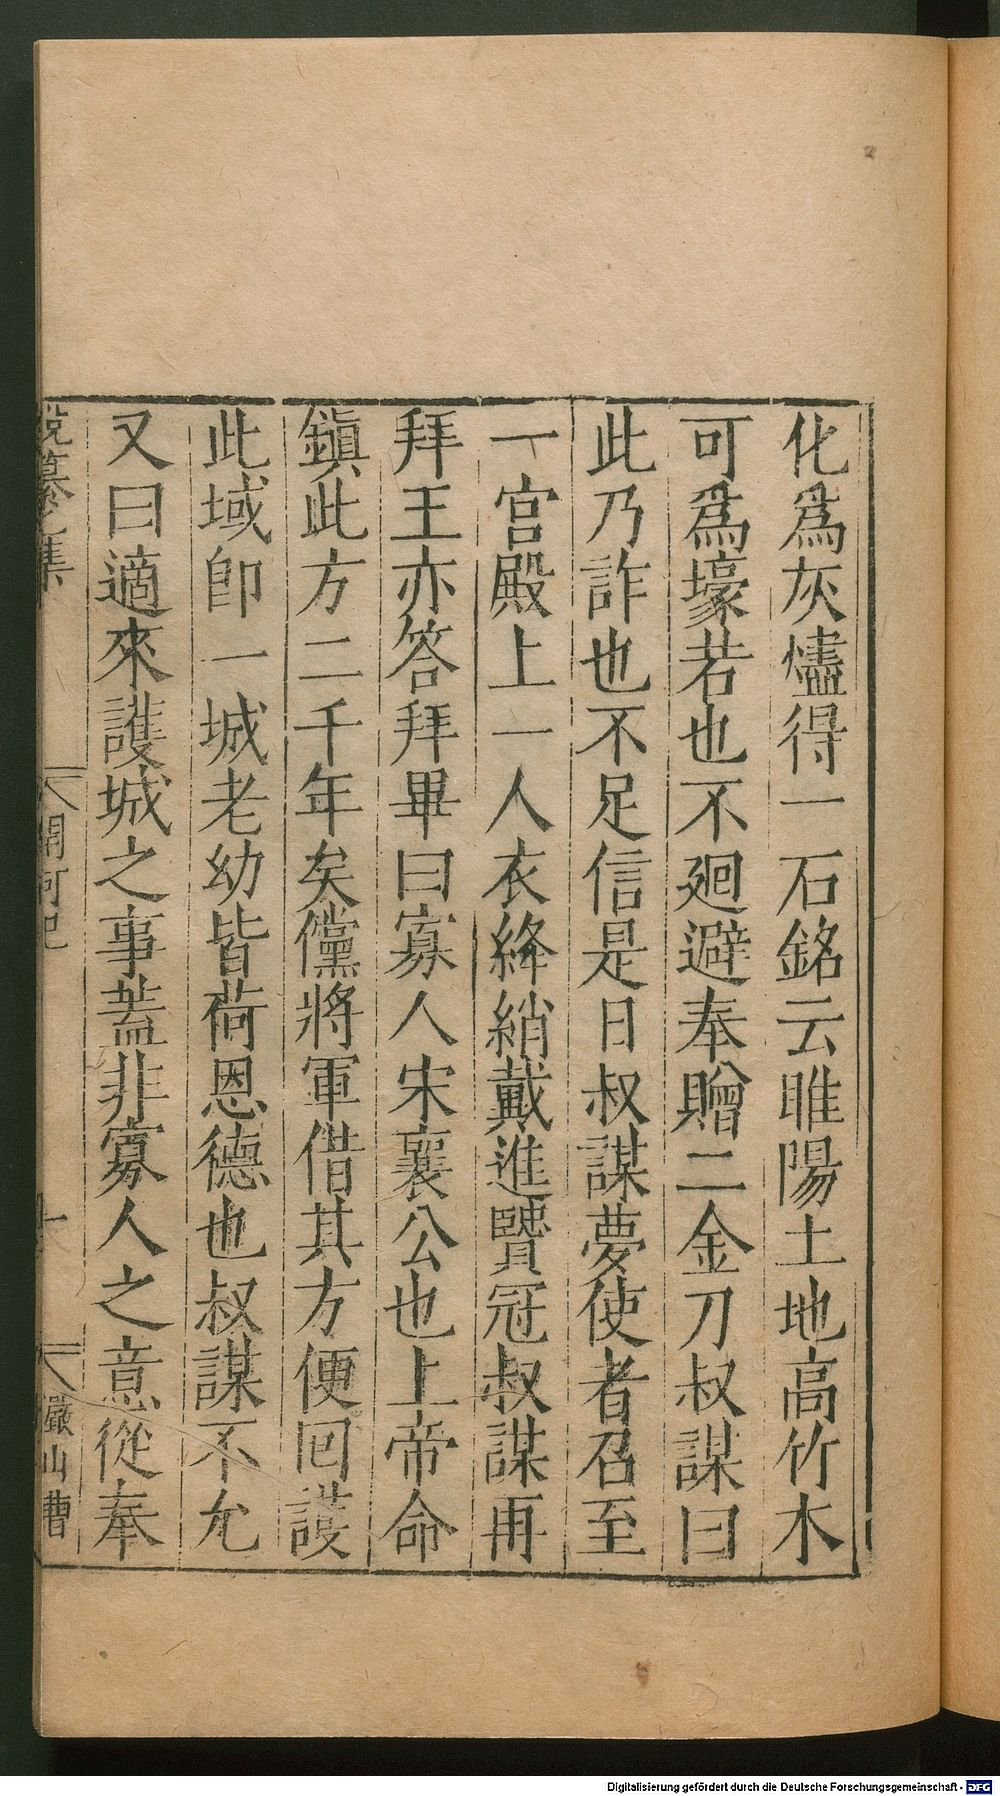 化爲灰燼得一石銘云睢陽土地高竹木
可爲壕若也不廻避奉贈二金刀叔謀曰
此乃詐也不足信是日叔謀夢使者召至
一宫殿上一人衣絳綃戴進賢冠叔謀再
拜王亦答拜畢曰寡人宋襄公也上帝命
鎭此方二千年矣儻將軍借其方便回護
此域卽一城老幼皆荷恩德也叔謀不允
又曰適來護城之事蓋非寡人之意從奉
説纂 集
開河記
十
巖山曹
Digitalisierung gefördert durch die Deutsche Forschungsgemeinschaft - DFG